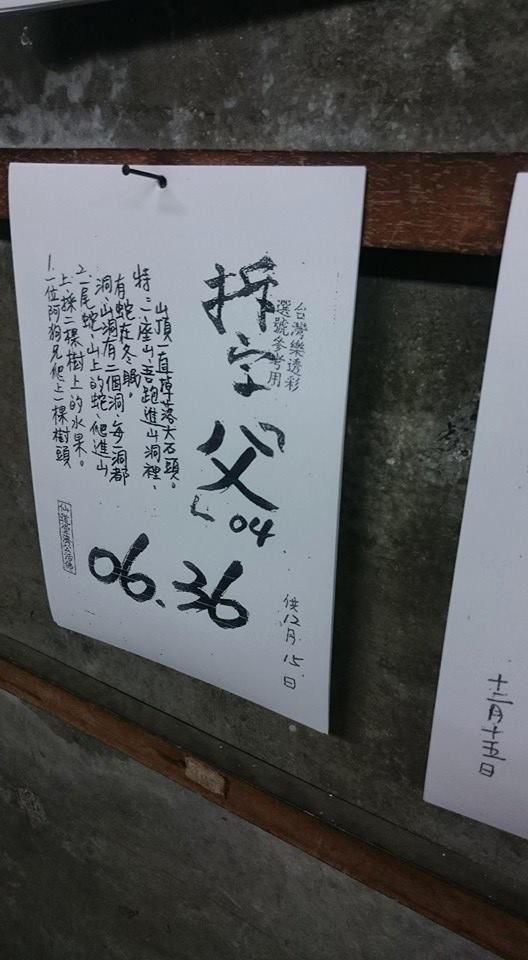 1.一位阿狗兄爬上一棵樹頭
上採二棵樹上的水果。
2.一尾蛇、山上的蛇、爬進山
洞、山洞有二個洞、每一洞都
有蛇在冬眠。
特二座山、吾跑進山洞裡、
山頂一直掉落大石頭。
台灣樂透彩
選號參考用
拆
父
04
06.36
供12月15日
十二月十五日